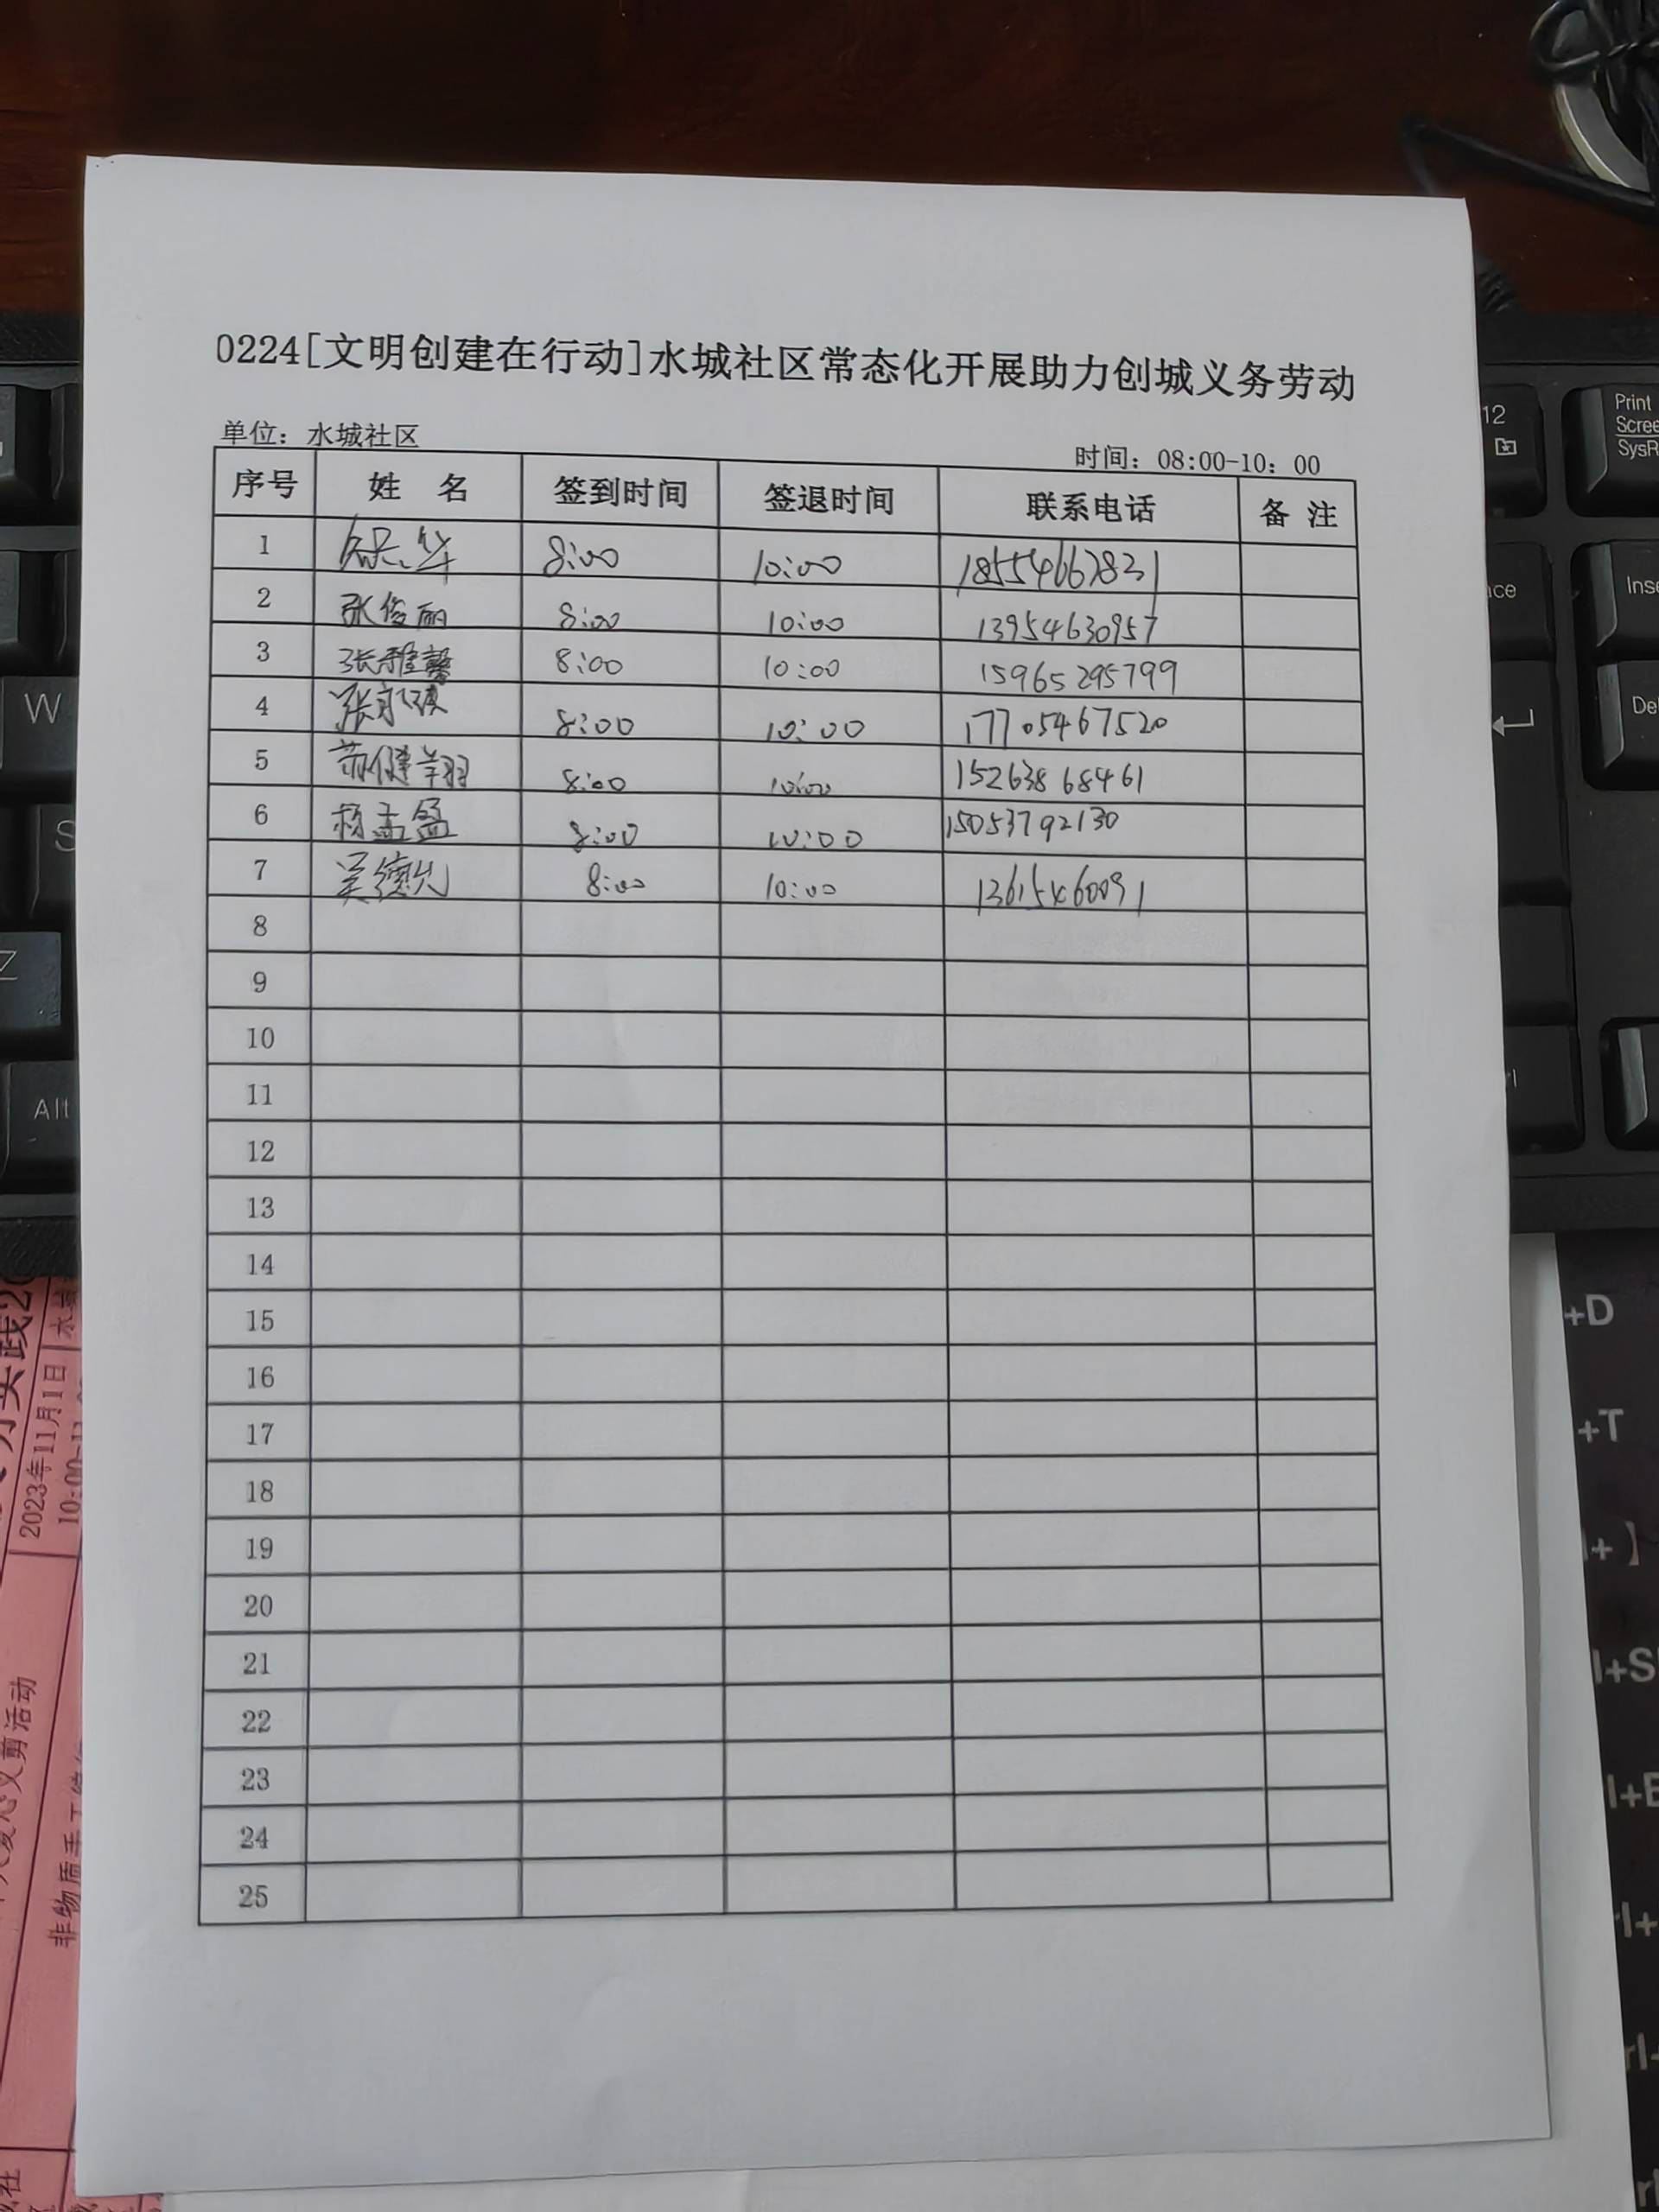 0224[文明创建在行动]水城社区常态化开展助力创城义务劳动
单位：水城社区
时间：08:00-10：00
序号 姓 名 签到时间 签退时间 联系电话 备 注
1 8:00 10:00
2 张俊丽 8:00 10:00 13954630957
3 张雅馨 8:00 10:00 15965295799
4 8:00 10:00 17705467520
5 8:00 10:00 15263868461
6 杨孟盈 8:00 10:00 15053792130
7 吴德光 8:00 10:00 13615460091
8
9
10
11
12
13
14
15
16
17
18
19
20
21
22
23
24
25
12
Print
Scree
SysR
Ins
W
Alt
Z
+D
+T
2023年11月1日
义剪活动